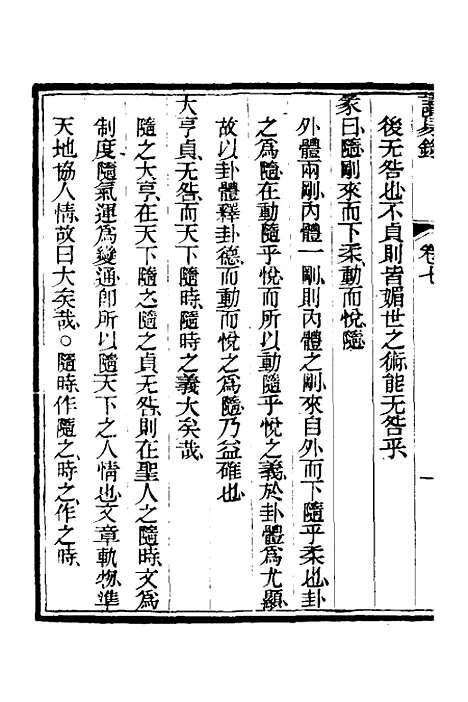 讀易錄
卷七
一
後无咎也不貞則皆媚世之術能无咎乎
彖曰隨剛來而下柔動而悅隨
外體兩剛內體一剛則內體之剛來自外而下隨乎柔也卦
之爲隨在動隨乎悅而所以動隨乎悅之義於卦體爲尤顯
故以卦體釋卦德而動而悅之爲隨乃益確也
大亨貞无咎而天下隨時隨時之義大矣哉
隨之大亨在天下隨之隨之貞无咎則在聖人之隨時文爲
制度隨氣運爲變通卽所以隨天下之人情也文章軌物準
天地協人情故曰大矣哉○隨時作隨之時之作之時